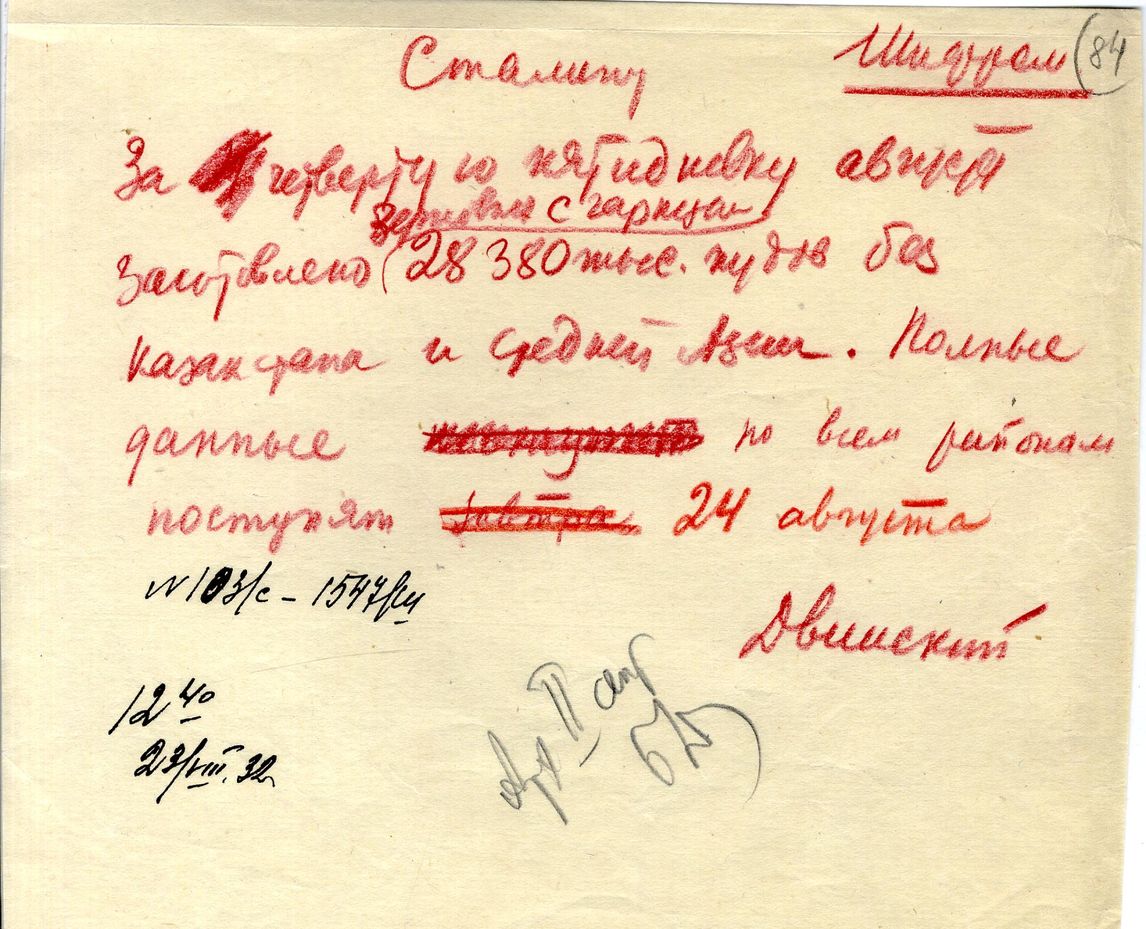 Шифром 84
Сталину
За четвертую пятидневку августа
зерновых с гарнцем
Заготовлено 28 380 тыс. пудов без
Казахстана и Средней Азии. Полные
данные поступят по всем районам
поступят завтра 24 августа
N 103/с - 1547/ш
Двинский
12 40
23/VIII.32